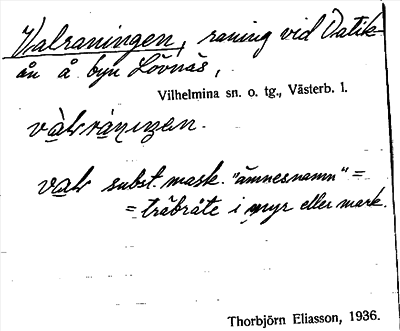 Valraningen, raning vid Datik-
ån å byn Lövnäs,
Vilhelmina sn. o. tg., Västerb. l.
valraningen.
val subst. mask. "ämnesnamn" =
= träbråte i myr eller mark.
Thorbjörn Eliasson, 1936.